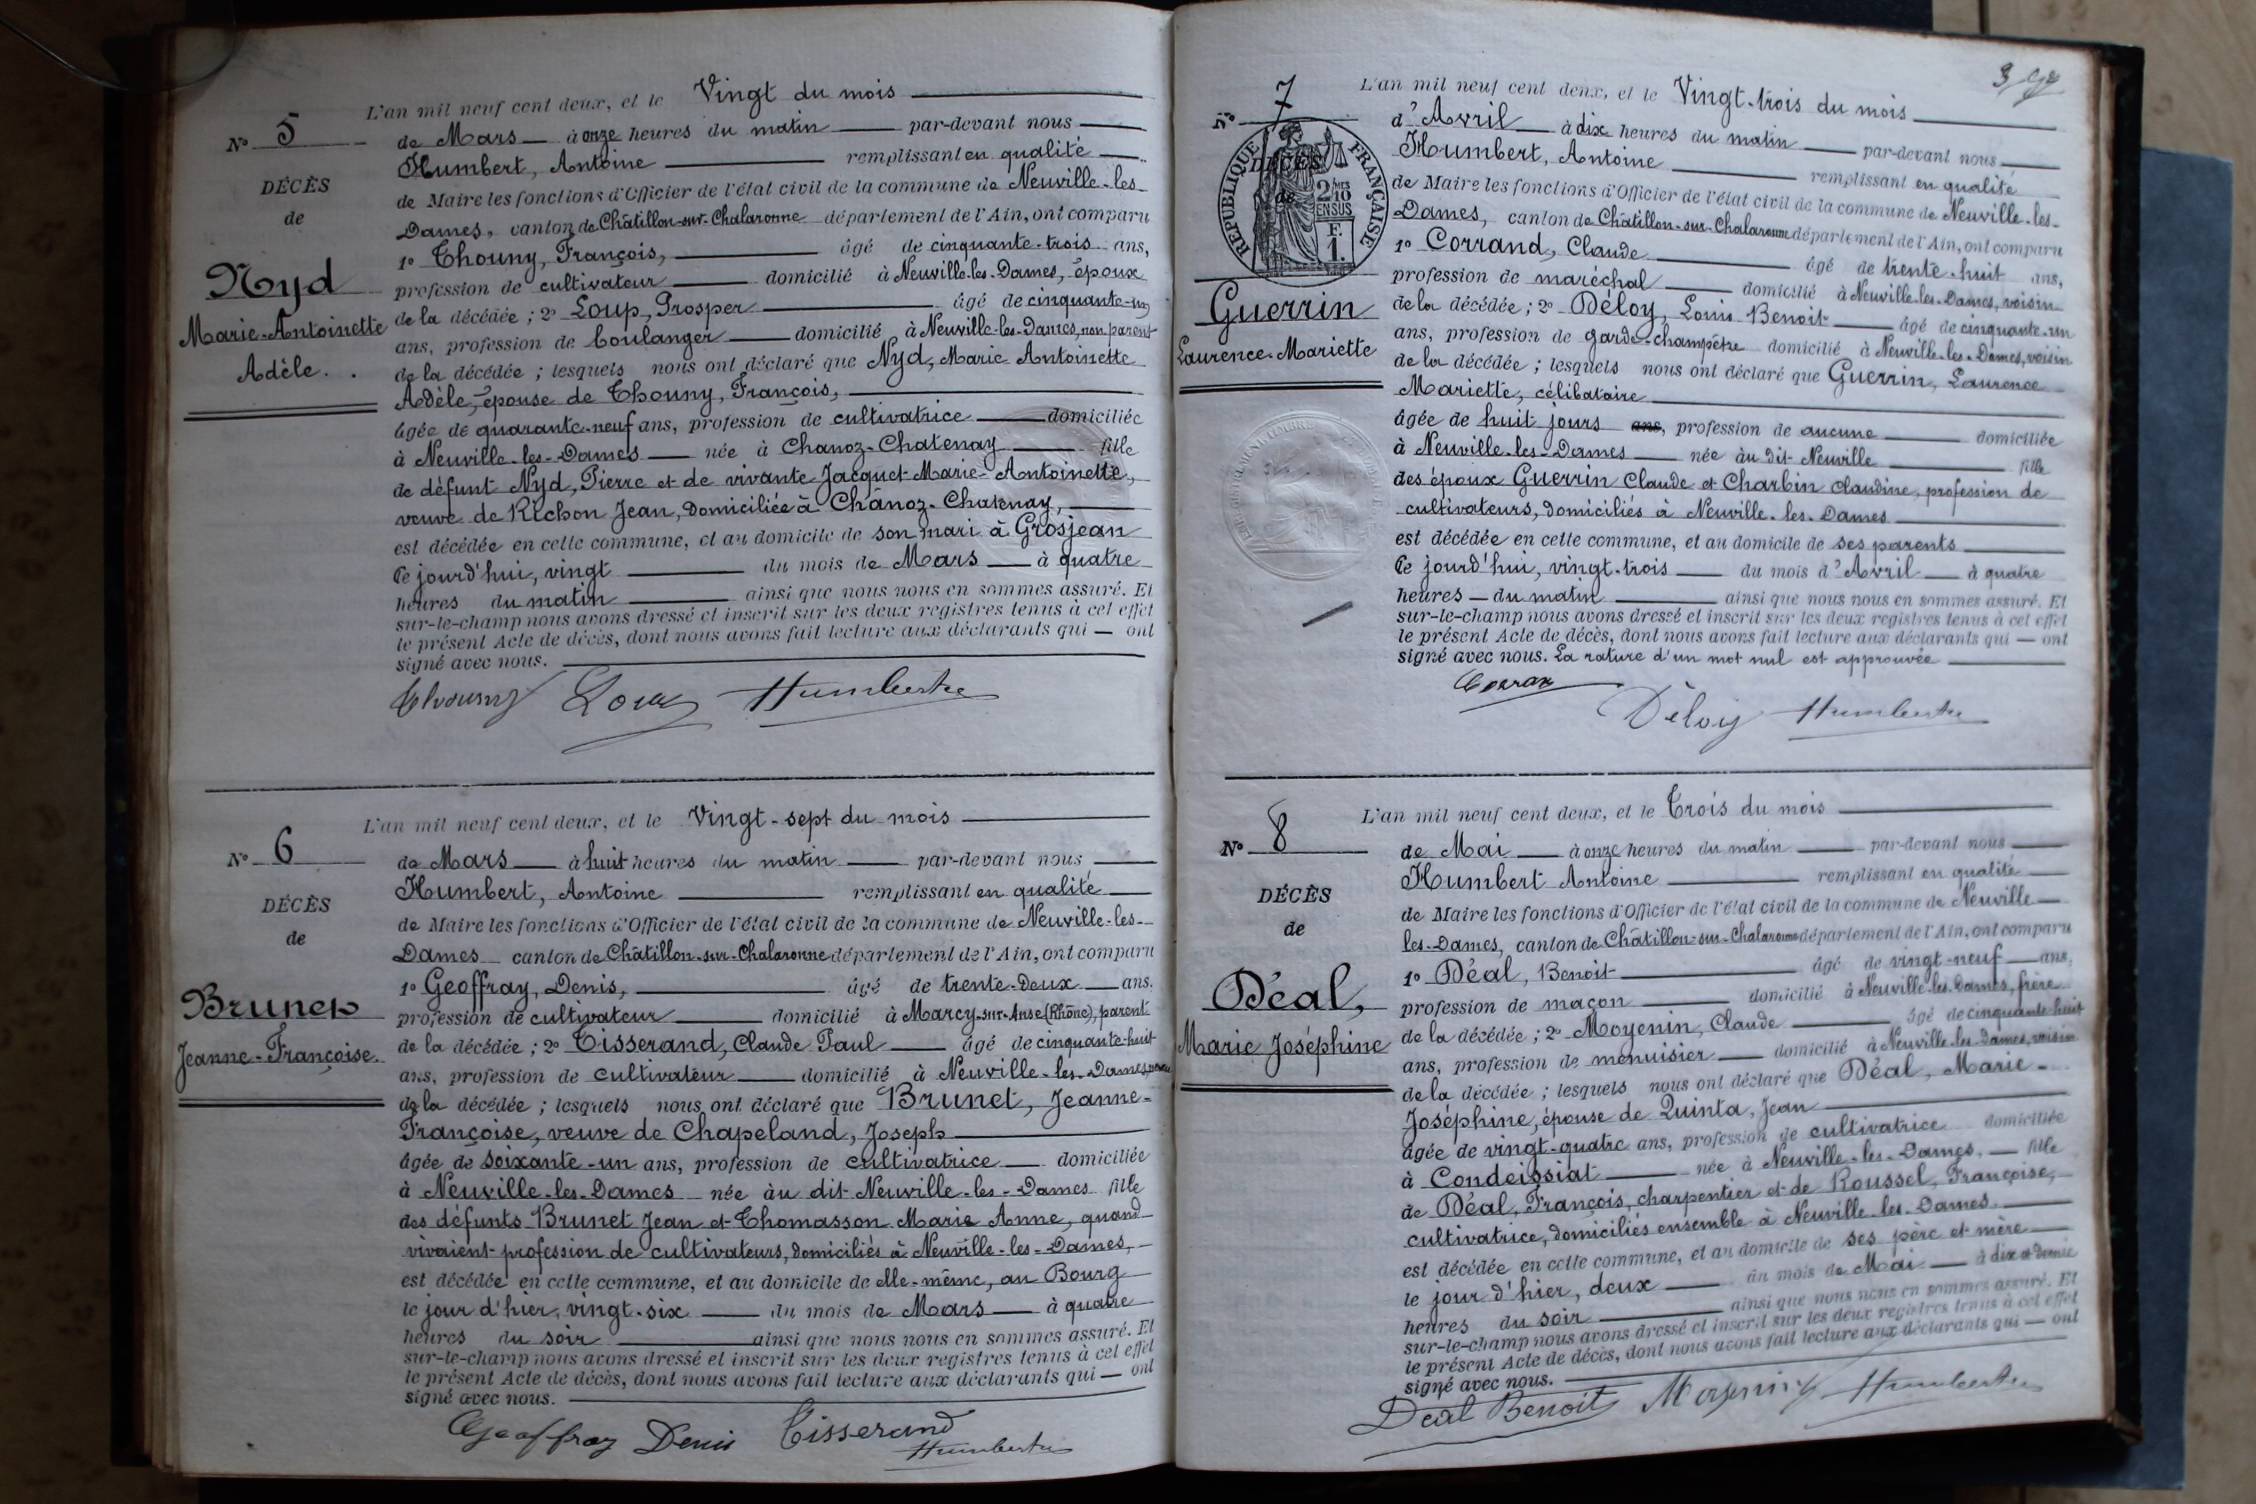 L'an mil neuf cent deux, et le Vingt du mois
N° 5
de Mars à onze heures du matin par-devant nous
Humbert, Antoine remplissant en qualité
DÉCÈS
de
de Maire les fonctions d'Officier de l'état civil de la commune de Neuville-les-
Dames, canton de Châtillon-sur-Chalaronne département de l'Ain, ont comparu
1° Thouny, François, âgé de cinquante-trois ans,
Nyd
Marie-Antoinette
Adèle.
profession de cultivateur domicilié à Neuville-les-Dames, époux
de la décédée ; 2° Loup, Prosper âgé de cinquante-un
ans, profession de boulanger domicilié à Neuville-les-Dames, non parent
de la décédée ; lesquels nous ont déclaré que Nyd, Marie Antoinette
Adèle, épouse de Thouny, François,
âgée de quarante-neuf ans, profession de cultivatrice domiciliée
à Neuville-les-Dames née à Chanoz-Chatenay fille
de défunt Nyd, Pierre et de vivante Jacquet Marie-Antoinette,
veuve de Richon Jean, domiciliée à Chanoz-Chatenay,
est décédée en cette commune, et au domicile de son mari à Grosjean
Ce jourd'hui, vingt du mois de Mars à quatre
heures du matin ainsi que nous nous en sommes assuré. Et
sur-le-champ nous avons dressé et inscrit sur les deux registres tenus à cet effet
le présent Acte de décès, dont nous avons fait lecture aux déclarants qui — ont
signé avec nous.
Thouny Loup Humbert
L'an mil neuf cent deux, et le Vingt-sept du mois
N° 6
de Mars à huit heures du matin par-devant nous
Humbert, Antoine remplissant en qualité
DÉCÈS
de
de Maire les fonctions d'Officier de l'état civil de la commune de Neuville-les-
Dames canton de Châtillon-sur-Chalaronne département de l'Ain, ont comparu
1° Geoffray, Denis, âgé de trente-deux ans.
Brunet
Jeanne-Françoise
profession de cultivateur domicilié à Marcy-sur-Anse (Rhône), parent
de la décédée ; 2° Tisserand, Claude Paul âgé de cinquante-huit
ans, profession de cultivateur domicilié à Neuville-les-Dames,
de la décédée ; lesquels nous ont déclaré que Brunet, Jeanne-
Françoise, veuve de Chapeland, Joseph
âgée de soixante-un ans, profession de cultivatrice domiciliée
à Neuville-les-Dames née au dit Neuville-les-Dames fille
des défunts Brunet Jean et Thomasson Marie Anne, quand
vivaient profession de cultivateurs, domiciliés à Neuville-les-Dames,
est décédée en cette commune, et au domicile de elle-même, au Bourg
le jour d'hier, vingt-six du mois de Mars à quatre
heures du soir ainsi que nous nous en sommes assuré. Et
sur-le-champ nous avons dressé et inscrit sur les deux registres tenus à cet effet
le présent Acte de décès, dont nous avons fait lecture aux déclarants qui — ont
signé avec nous.
Geoffray Denis Tisserand
Humbert
3
L'an mil neuf cent deux, et le Vingt-trois du mois
N° 7
d'Avril à dix heures du matin par-devant nous
Humbert, Antoine remplissant en qualité
DÉCÈS
de
RÉPUBLIQUE FRANÇAISE
2/10
EN SUS
F.
1.
de Maire les fonctions d'Officier de l'état civil de la commune de Neuville-les-
Dames, canton de Châtillon-sur-Chalaronne département de l'Ain, ont comparu
1° Corrand, Claude âgé de trente-huit ans,
Guerrin
Laurence-Mariette
profession de maréchal domicilié à Neuville-les-Dames, voisin
de la décédée ; 2° Déloy, Louis Benoit âgé de cinquante-un
ans, profession de garde-champêtre domicilié à Neuville-les-Dames, voisin
de la décédée ; lesquels nous ont déclaré que Guerrin, Laurence
Mariette, célibataire
âgée de huit jours ans, profession de aucune domiciliée
à Neuville-les-Dames née au dit Neuville fille
des époux Guerrin Claude et Charbin Claudine, profession de
cultivateurs, domiciliés à Neuville-les-Dames
est décédée en cette commune, et au domicile de ses parents
Ce jourd'hui, vingt-trois du mois d'Avril à quatre
heures — du matin ainsi que nous nous en sommes assuré. Et
sur-le-champ nous avons dressé et inscrit sur les deux registres tenus à cet effet
le présent Acte de décès, dont nous avons fait lecture aux déclarants qui — ont
signé avec nous. La rature d'un mot nul est approuvée
Déloy Humbert
L'an mil neuf cent deux, et le Trois du mois
N° 8
de Mai à onze heures du matin par-devant nous
Humbert Antoine remplissant en qualité
DÉCÈS
de
de Maire les fonctions d'Officier de l'état civil de la commune de Neuville
les-Dames, canton de Châtillon-sur-Chalaronne département de l'Ain, ont comparu
1° Déal, Benoit âgé de vingt-neuf ans,
Déal,
Marie Joséphine
profession de maçon domicilié à Neuville-les-Dames, frère
de la décédée ; 2° Moyenin, Claude âgé de cinquante-huit
ans, profession de menuisier domicilié à Neuville-les-Dames, voisin
de la décédée ; lesquels nous ont déclaré que Déal, Marie-
Joséphine, épouse de Quinta, Jean
âgée de vingt-quatre ans, profession de cultivatrice domiciliée
à Condeissiat née à Neuville-les-Dames, fille
de Déal, François, charpentier et de Roussel, Françoise,
cultivatrice, domiciliés ensemble à Neuville-les-Dames.
est décédée en cette commune, et au domicile de ses père et mère
le jour d'hier, deux du mois de Mai à dix et demie
heures du soir ainsi que nous nous en sommes assuré. Et
sur-le-champ nous avons dressé et inscrit sur les deux registres tenus à cet effet
le présent Acte de décès, dont nous avons fait lecture aux déclarants qui — ont
signé avec nous.
Déal Benoit Moyenin Humbert